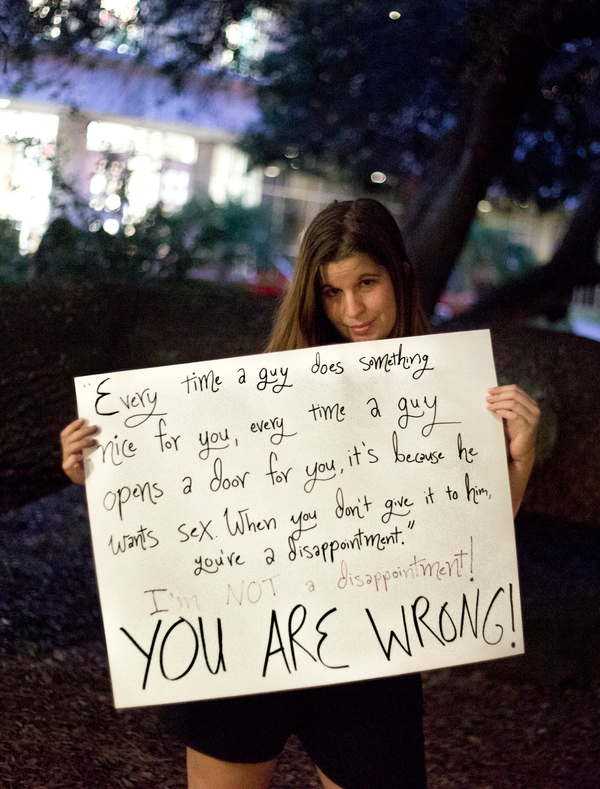 "Every time a guy does something
nice for you, every time a guy
opens a door for you, it's because he
wants sex. When you don't give it to him,
you're a disappointment."
I'm NOT a disappointment!
YOU ARE WRONG!